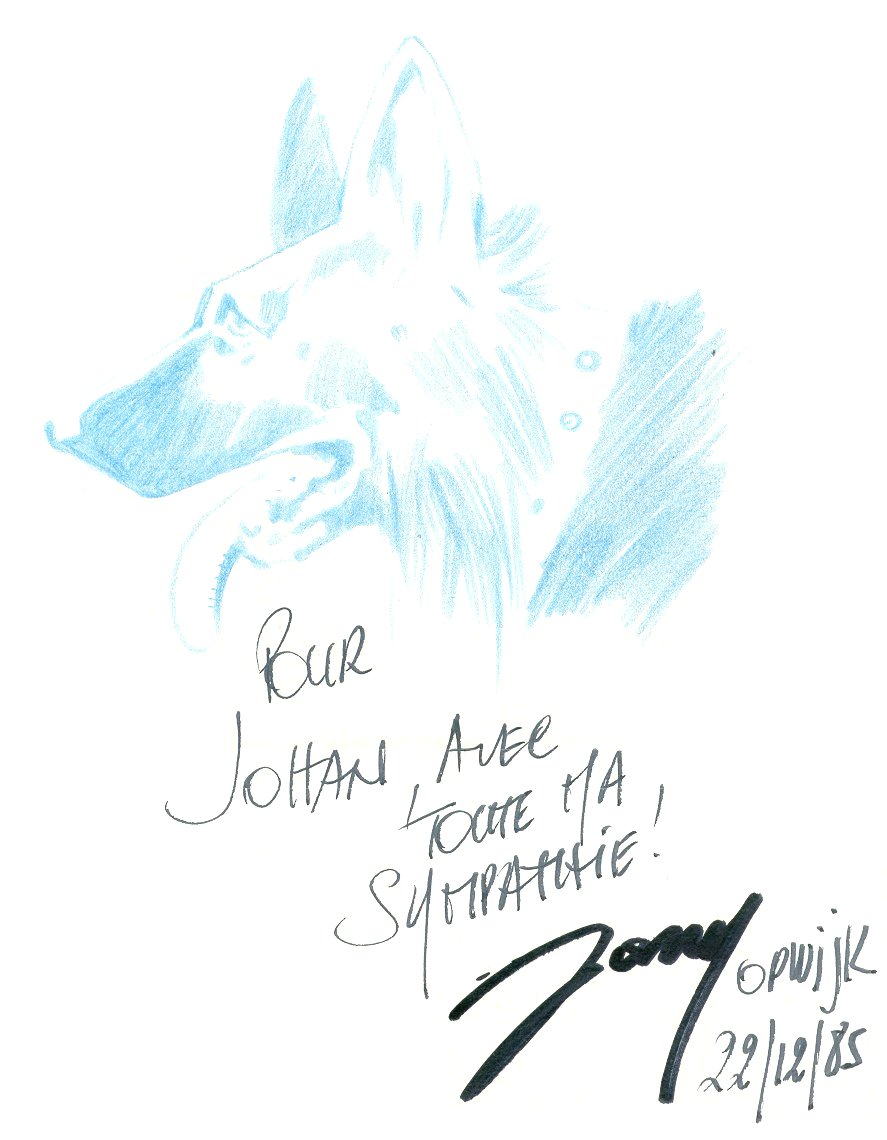 POUR
JOHAN, AVEC
TOUTE MA
SYMPATHIE!
OPWIJK
22/12/85